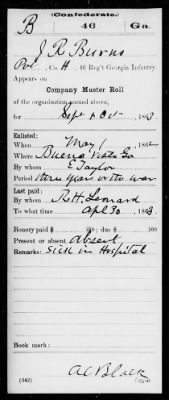 (Confederate.)
B 46 Ga.
J. R. Burns
Pvt., Co. H, 46 Reg't Georgia Infantry.
Appears on
Company Muster Roll
of the organization named above,
for Sept & Oct, 1863.
Enlisted:
When May 1, 1862.
Where Buena Vista Ga
By whom E Taylor
Period three years or the war
Last paid:
By whom R. H. Leonard
To what time Apl 30, 1863.
Bounty paid $ 100; due $ 100
Present or absent Absent
Remarks: Sick in Hospital
Book mark:
(642) A C Black
Copyist.